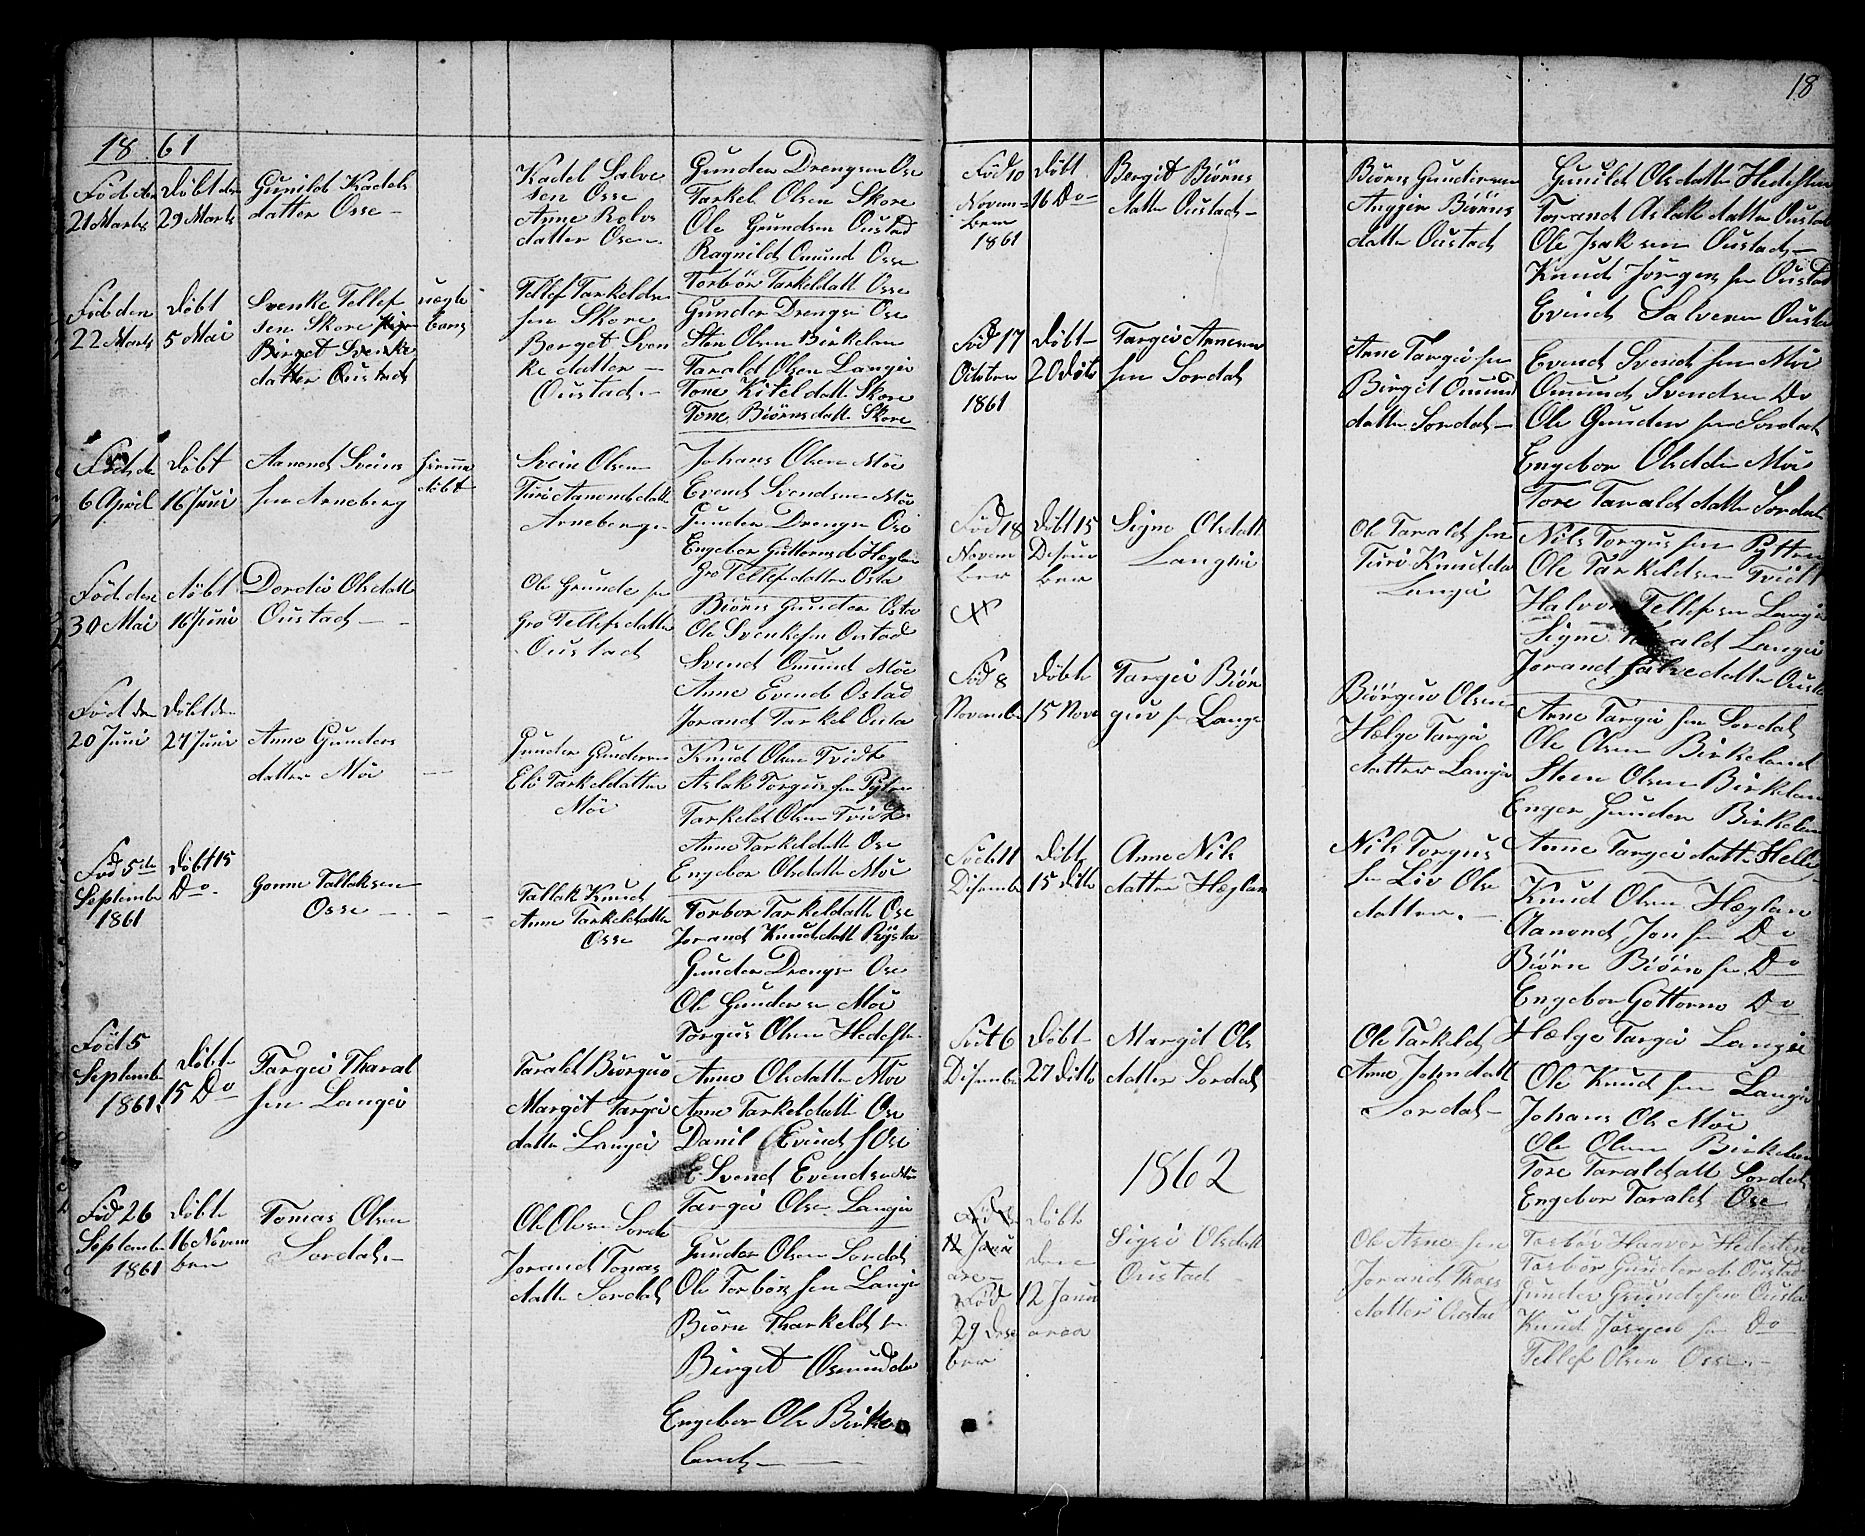 18 61
Född den
21 Marts
Döbt den
29 Marts
Gunild Kadels
datter Osse -
Kadel Salve
sen Osse
Anne Rolvs
datter Osse
Gunder Drengsen Ose
Tarkel Olsen Skore
Ole Grundsen Oustad
Ragnild Omund Osse
Torbör Tarkeldatt Osse
Född den
22 Marts
Döbt
5 Mai
Svenke Tellef
sen Skore
Birget Svenke
datter Oustad
uægte
Tellef Tarkelds
sen Skore
Berget Sven
ke datter -
Oustad -
Gunder Drengs Ose
Sten Olsen Birkelan
Tarald Olsen Langei
Tone Kiteldatt Skore
Tone Biörnsdatt Skore
6 April
Döbt
16 Juni
Aanond Sveins
sen Arneberg
hiemme
döbt
Svein Olsen
Turi Aanondsdatt
Arneberg -
Johans Olsen Möe
Evend Svendsen Möe
Gunder Drengs Ose
Engebor Guttorms d Hæglan
Gro Tellef datter Osta
Född den
30 Mai
Döbt
16 Juni
Dordei Olsdatt
Oustad -
Ole Grunde sen
Gro Tellefs datter
Oustad
Biörn Gunder Osta
Ole Svenksen Oustad
Svend Omund Möe
Anne Evend Ostad
Jorand Tarkel Ousta
Född den
20 Juni
Döbt den
27 Juni
Anne Gunders
datter Möe
Gunder Gundersen
Eli Tarkeldatter
Möe
Knud Olsen Tvidt
Aslak Torgus sen Pytten
Tarkeld Olsen Tvidt
Anne Tarkeldatt Ose
Engebor Olsdatte Möe
Född 5te
September
1861
Döbt 15
Do
Gonne Tallaksen
Osse -
Tallak Knud
Anne Tarkeldsdatter
Osse
Torbor Tarkeldatt Ose
Jorand Knudsdatt Rysta
Gunder Drengs Ose
Ole Gunder sen Möe
Torgus Olsen Hedeste
Född 5
September
1861.
Döbt
15 Do
Targei Tharal
sen Langei
Tarald Biörguv
Margit Targei
datter Langei
Anne Olsdatte Möe
Anne Tarkeldatt Ose
Danil Evind s Ose
Svend Evendsen Möe
Targei Olsen Langei
Född 26
September
1861
Döbt
16 Novem
ber
Tomas Olsen
Sordal -
Ole Olsen Sorda
Jorand Tomas
datte Sordal
Gunder Olsen Sordal
Ole Torbörs sen Langei
Biörn Tharkeld sen
Birget Osmund da
Engebor Ole Birke
land -
18
Född 10
Novem
ber
1861
Döbt
16 Do
Bergit Biörns
datte Oustad -
Biörn Gundersen
Anggjer Biörns
datte Oustad
Gunild Olsdatte Hedesten
Torand Aslak datter Oustad
Ole Isak sen Oustad -
Knud Jörgens sen Oustad
Evind Salvesen Ousta
Född 17
Octobr
1861
Döbt
20 Dito
Targei Arnesen
sen Sordal
Arne Targei sen
Birgit Omund
datter Sordal -
Evend Svend sen Möe
Omund Svendsen Do
Ole Gunder sen Sordal
Engebor Olsddr Möe
Tore Tarald datte Sordal
Född 18
Novem
ber
Döbt 15
Desem
ber
Signe Olsdatt
Langei
Ole Tarald sen
Turi Knud da
Langei
Nils Torgus sen Pytten
Ole Tarkeldsen Tvidt
Halvor Tellefsen Langei
Signe Tarald Langei
Jorand Salvedatte Ousta
Född 8
November
Döbt
15 Nov
Targei Biör
guv sen Lange
Biörguv Olsen
Hælge Targei
datter Langei
Arne Targei sen Sordal
Ole Olsen Birkeland
Steen Olsen Birkelan
Enger Gunder Birkelan
Född 11
Disember
Döbt
15 Ditto
Anne Nils
datter Hæglan
Nils Torgus
sen Liv Ols
datter. -
Anne Targei datte Helle
Knud Olsen Hæglan
Aanond Jon sen Do
Biörn Biörn sen Do
Engebor Gottorms Do
Hælge Targei Langei
Född 6
Disember
Döbt
27 Ditto
Margit Ols
datter Sordal
Ole Tarkeld
Anne John datt
Sordal -
Ole Knud sen Langei
Johans Ols Möe
Ole Olsen Birkelan
Tore Taraldsatt Sordal
Engebor Tarald Ose
1862
12 Janu
are
Född
29 Dese
ber
Döbt
den
12 Janu
area
Sigri Olsdatt
Oustad
Ole Arne sen
Jorand Thors
datter Oustad
Torbör Haavor Hedesten
Torbör Gunder d Oustad
Gunder Grundesen Ousta
Knud Jörgen sen Do
Tellef Olsen Osse -